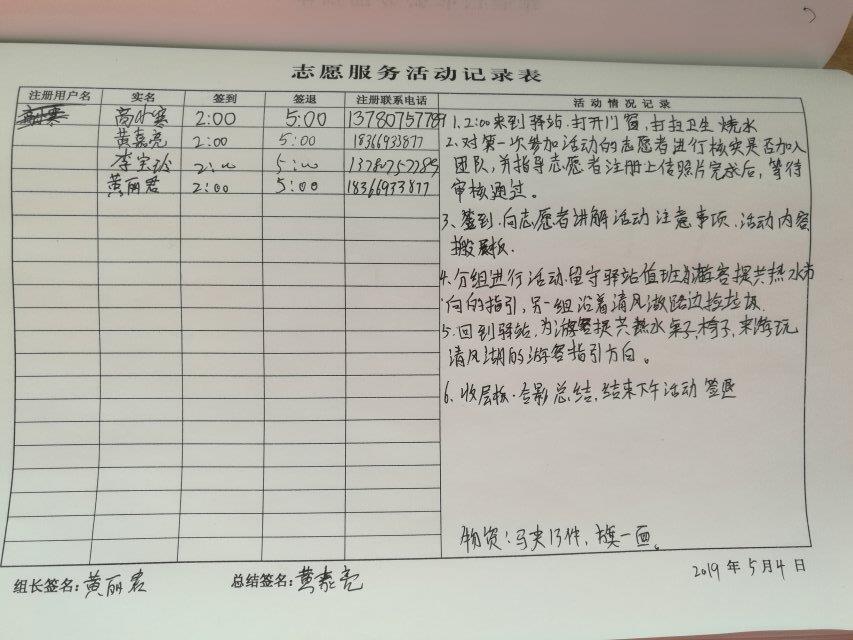 志愿服务活动记录表
注册用户名 实名 签到 签退 注册联系电话 活动情况记录
高小寒 2:00 5:00 13780757789
黄嘉亮 2:00 5:00 18366933877
李宝玲 2:00 5:00 13780757789
黄丽君 2:00 5:00 18366933877
1、2:00来到驿站.打开门窗,打扫卫生 烧水
2.对第一次参加活动的志愿者进行核实是否加入
团队,并指导志愿者注册上传照片完成后,等待
审核通过。
3、签到.向志愿者讲解活动 注意事项.活动内容
搬展板.
4.分组进行活动.留守驿站值班为游客提供热水
方向的指引,另一组沿着清风湖路边捡垃圾.
5.回到驿站,为游客提供热水 桌子,椅子,来游玩
清风湖的游客指引方向。
6、收展板.合影 总结,结束下午活动 签退
物资:马夹13件,旗一面。
组长签名:黄丽君 总结签名:黄嘉亮
2019年5月4日